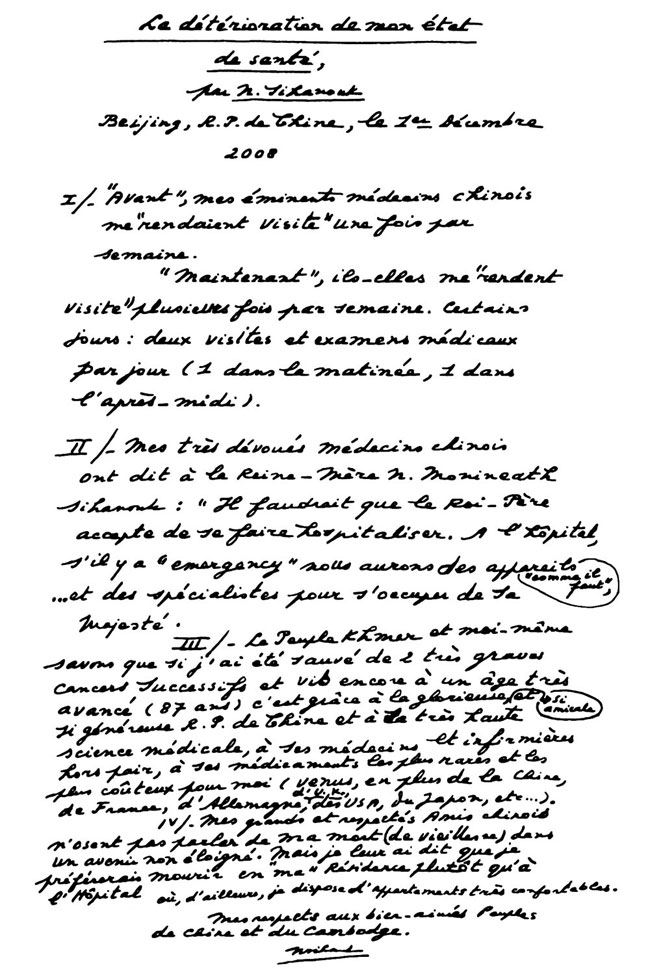 La détérioration de mon état
de santé,
par N. Sihanouk
Beijing, R.P. de Chine, le 1er Décembre
2008
I/- "Avant", mes éminents médecins chinois
me "rendaient visite" une fois par
semaine.
"Maintenant", ils-elles me "rendent
visite" plusieurs fois par semaine. Certains
jours : deux visites et examens médicaux
par jour (1 dans la matinée, 1 dans
l'après-midi).
II/- Mes très dévoués médecins chinois
ont dit à la Reine-Mère N. Monineath
Sihanouk : "Il faudrait que le Roi-Père
accepte de se faire hospitaliser. A l'hôpital,
s'il y a "emergency" nous aurons des appareils
"comme il faut",
...et des spécialistes pour s'occuper de Sa
Majesté.
III/- Le Peuple Khmer et moi-même
savons que si j'ai été sauvé de 2 très graves
cancers successifs et vis encore à un âge très
avancé (87 ans) c'est grâce à la glorieuse, et si amicale
si généreuse R.P. de Chine et à la très haute
science médicale, à ses médecins et infirmières
hors pair, à ses médicaments les plus rares et les
plus coûteux pour moi (venus, en plus de la Chine,
de France, d'Allemagne, d'U.K., des USA, du Japon, etc...).
IV/- Mes grands et respectés Amis chinois
n'osent pas parler de ma mort (de vieillesse) dans
un avenir non éloigné. Mais je leur ai dit que je
préférerais mourir en ma "Résidence plutôt qu'à
l'Hôpital où, d'ailleurs, je dispose d'appartements très confortables.
Mes respects aux bien-aimés Peuples
de Chine et du Cambodge.